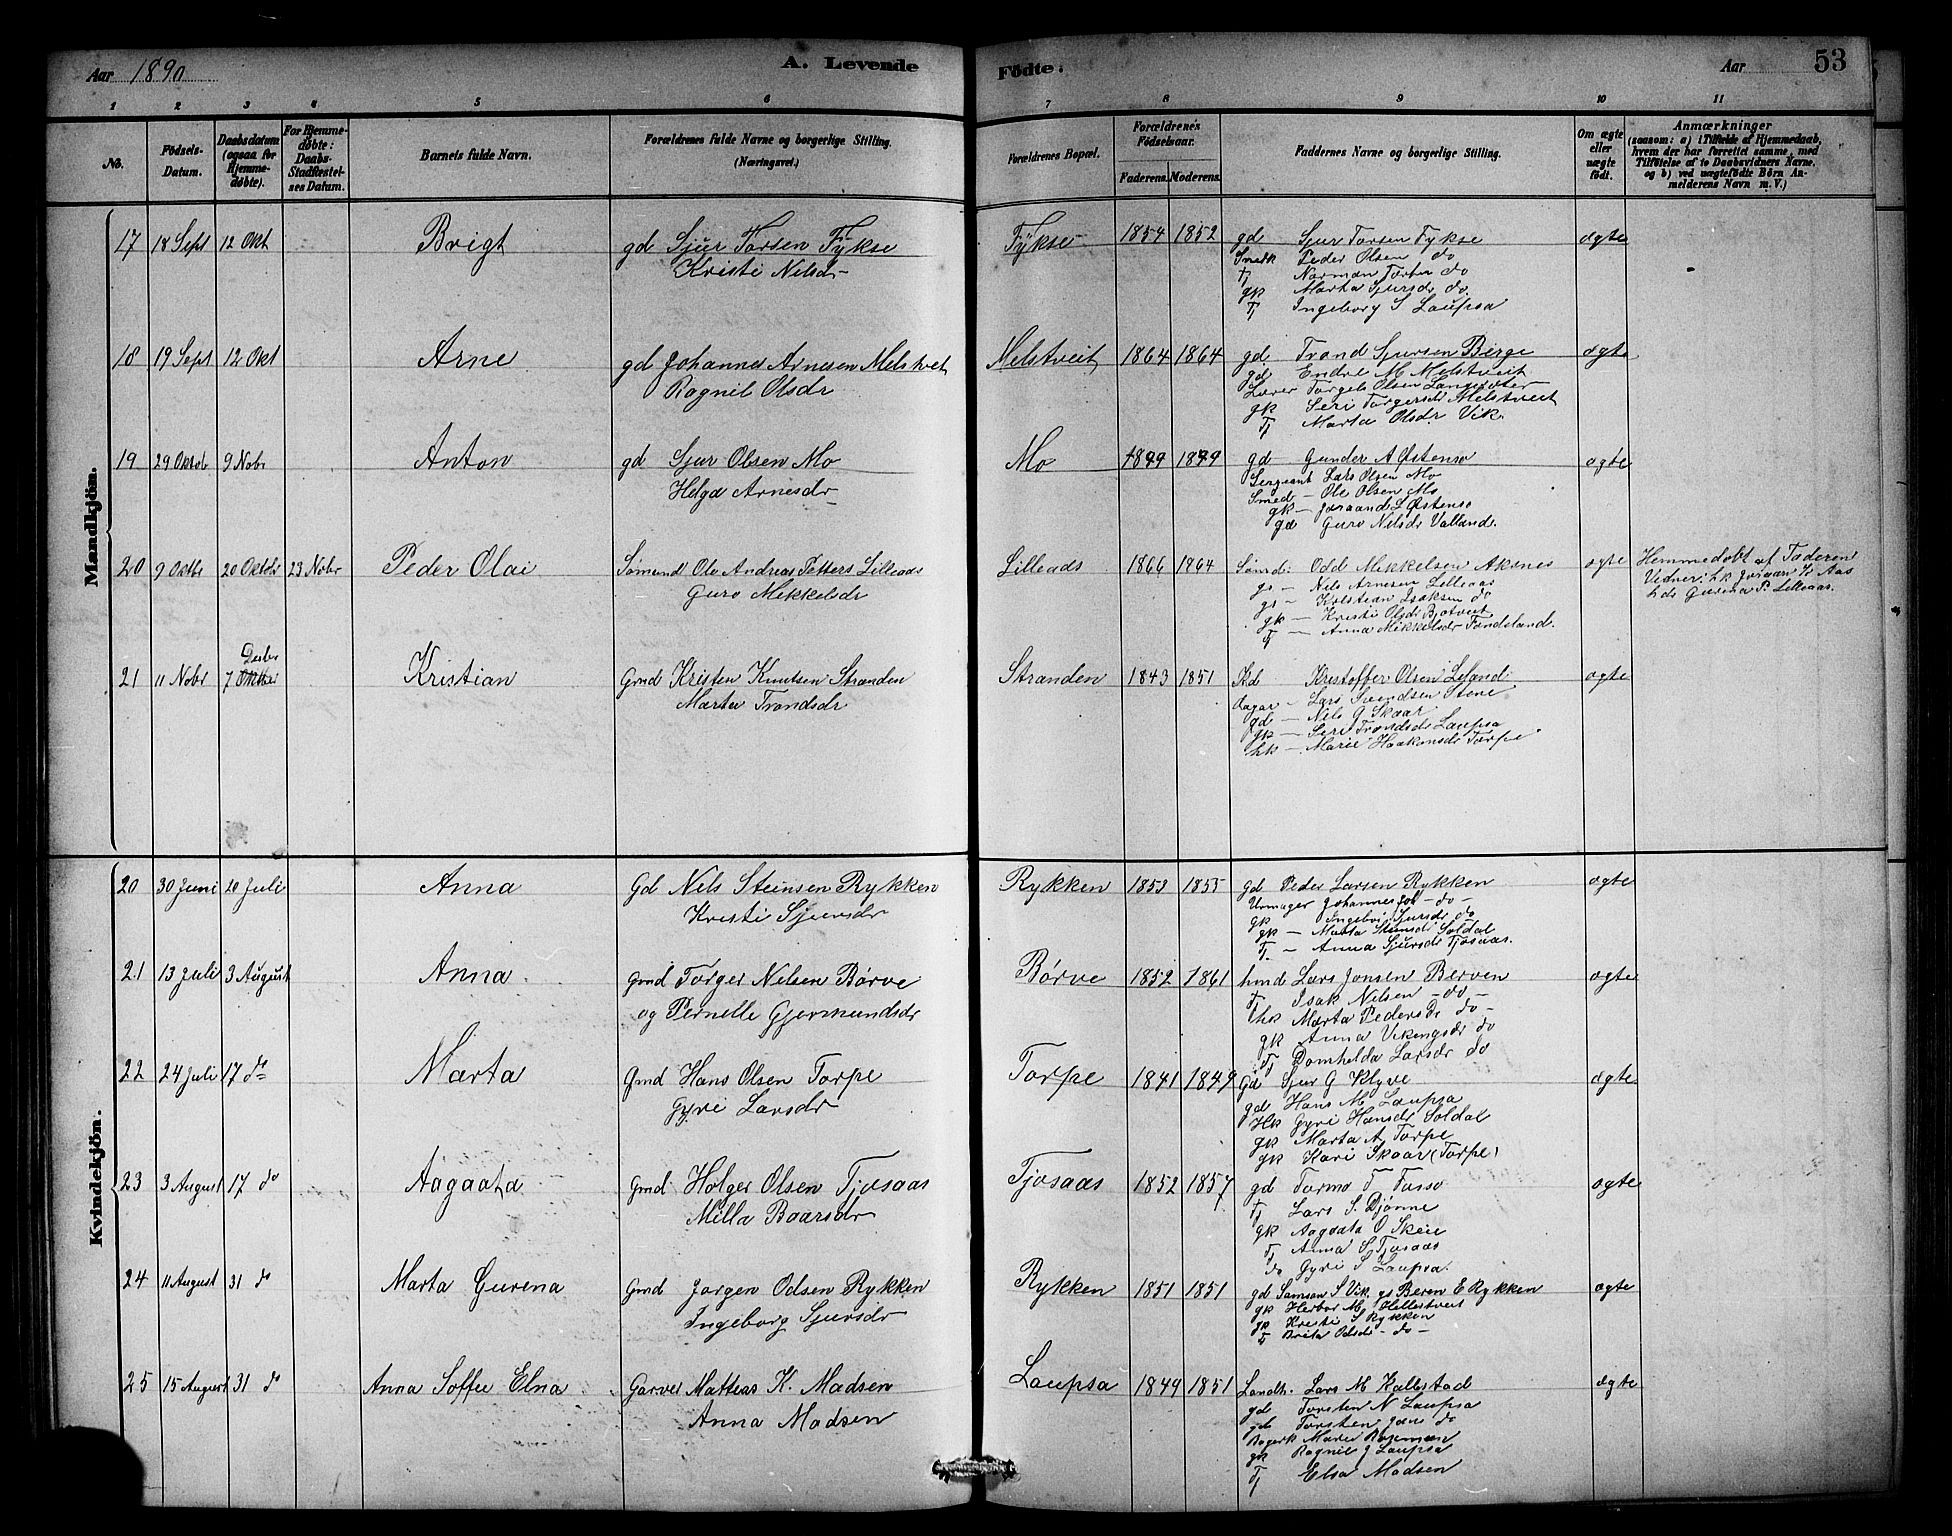 Aar 1890
A. Levende
Fødte.
Aar
53
1 2 3 4 5 6 7 8 9 10 11
No.
Fødsels-Datum.
Daabsdatum (ogsaa for Hjemme-døbte).
For Hjemme-døbte: Daabs-Stadfæstel-ses Datum.
Barnets fulde Navn.
Forældrenes fulde Navne og borgerlige Stilling. (Næringsvei.)
Forældrenes Bopæl.
Forældrenes Fødselsaar.
Faderens. Moderens.
Faddernes Navne og borgerlige Stilling.
Om ægte eller uægte født.
Anmærkninger
(saasom: a) i Tilfælde af Hjemmedaab, hvem der har forrettet samme, med Tilføielse af to Daabsvidners Navne, og b) ved uægtefødte Børn An-melderens Navn m. V.)
Mandkjön.
17 18 Sept 12 Okt Brigt gd Sjur Torsen Fykse Fykse 1854 1852 gd Sjur Torsen Fykse ægte
Kristi Nilsdr
Peder Olsen do
Tj Norman Torsen do
gk Marta Sjursdr do
Tj Ingeborg S Laupsa
18 19 Sept 12 Okt Arne gd Johannes Arnesen Melstveit Melstveit 1864 1864 gd Trond Sjursen Berge ægte
Ragnil Olsdr
gd Endre M Melstveit
Lærer Torgels Olsen Langesæter
gk Seri Torgersdr Melstveit
Tj Marta Olsdr Vik.
19 29 Oktob 9 Nobr Anton gd Sjur Olsen Mo Mo 1849 1849 gd Gunder A Østensø ægte
Helga Arnesdr
Sergeant Lars Olsen Mo
Smed – Ole Olsen Mo
gk – Joraand L Østensø
gd Guro Nelsdr Valland.
20 9 Oktbr 20 Oktobr 23 Nobr Peder Olai Sømand Ole Andreas Petters Lilleaas Lilleads 1866 1864 Sømd: Odd Mikkelsen Aksnes ægte Hemmedøbt af Faderen
Guro Mikkelsdr
Vedner: hk Joraan K Aas
gs – Nils Arnesen Lilleaas
hds Gurina P. Lilleaas.
gs – Kristian Isaksen do
gk – Kristi Olsdr Bjotveit
Tj – Anna Mikkelsdr Tondeland.
21 11 Nobr 7 Decbr Oktbr Kristian Gmd Kristen Knutsen Stranden Stranden 1843 1851 Kd Kristoffer Olsen Leland ægte
Marta Trondsdr
Lars Svendsen Stene
gd – Nils G Skaar
gk – Seri Trondsdr Laupsa
hk – Marie Haakonsdr Torpe
Kvindekjön.
20 30 Juni 20 Juli Anna Gd Nils Steinsen Rykken Rykken 1853 1855 gd Peder Larsen Rykken ægte
Kristi Sjursdr
Urmager Johannes – do –
gk Ingebor Sjursdr do
gk – Marta Steinsdr Soldal
Tj. – Anna Sjursdr Tjosaas.
21 13 Juli 3 August Anna Gmd Torger Nilsen Børve Børve 1852 1861 hmd Lars Jonsen Berven ægte
og Pernelle Gjermundsdr
Tj Isak Nilsen – do –
hk Marta Pedersdr do –
gk Anna Vikingsdr do
Tj Domhilda Larsdr do
22 24 Juli 17 do Marta Gmd Hans Olsen Torpe Torpe 1841 1849 Gd Sjur G Klyve ægte
Gyri Larsdr
gd Hans M Laupsa
Hk Gyri Hansdr Soldal
gk Marta A Torpe
gk Kari Skaar (Torpe)
23 3 August 17 do Aagaata Gmd Holger Olsen Tjosaas Tjosaas 1852 1857 gd Tormo T Tosso ægte
Milla Baarsdr
Tj Lars S. Djønne
gk Aagaata O Skeie
Tj Anna S Tjosaas
do Gyri S Laupsa.
24 11 August 31 do Marta Gurena Gmd Jorgen Odsen Rykken Rykken 1851 1851 gd Samson S Vik. gs Beren E Rykken ægte
Ingeborg Sjursdr
gk Herbor M. Hellestveit
gk Kristi S Rykken
Tj Brita Odsdr – do –
25 15 August 31 do Anna Soffie Elna Garver Mattias K. Madsen Laupsa 1849 1851 Landh. Lars M Kallestad ægte
Anna Madsen
gd Torsten N Laupsa
gd Torsten Jans do
gk Ragnil J Laupsa
Tj Elsa Madsen